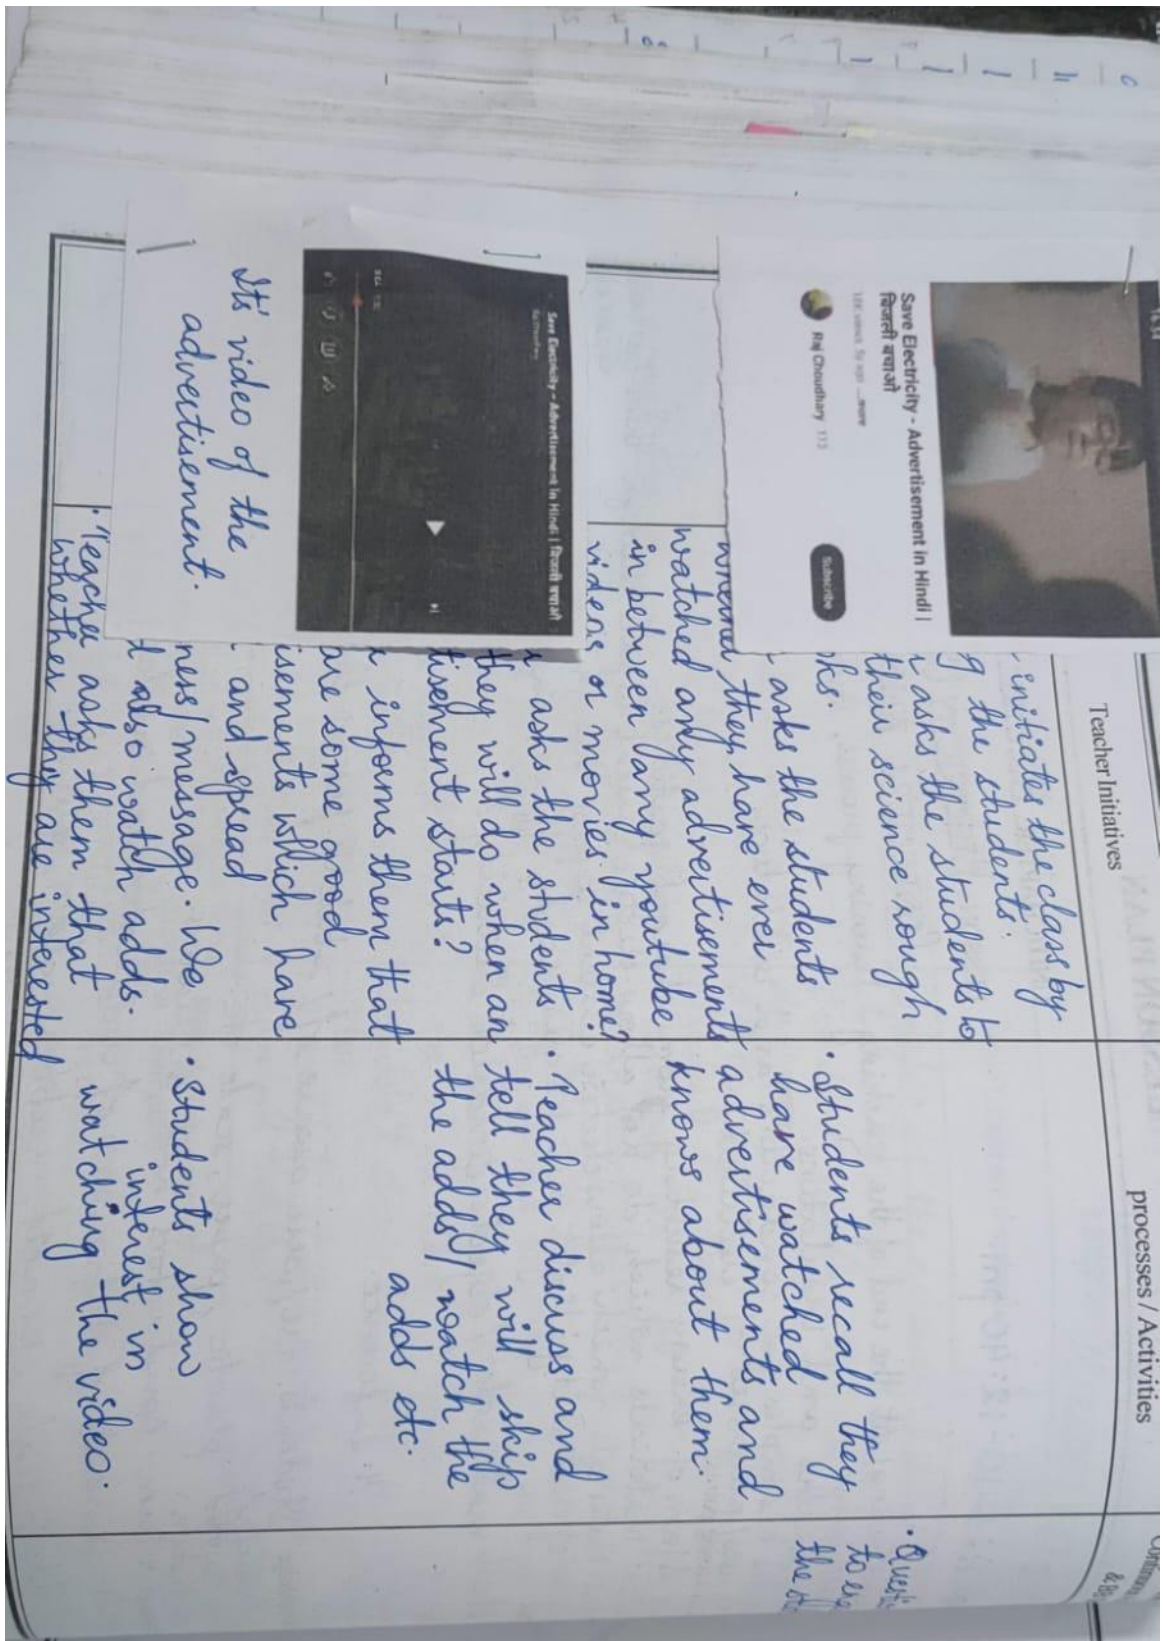 Save Electricity - Advertisement in Hindi |
बिजली बचाओ
Raj Choudhary
Subscribe
Save Electricity - Advertisement in Hindi | बिजली बचाओ
It's video of the
advertisement.
Teacher Initiatives
initiates the class by
g the students.
asks the students to
their science rough
oks.
asks the students
they have ever
watched any advertisements
in between any youtube
videos or movies in home?
asks the students
they will do when an
tisement starts?
informs them that
are some good
isements which have
and spread
ness/message. We
also watch adds.
• Teacher asks them that
whether they are interested
processes / Activities
• Students recall they
have watched
advertisements and
knows about them.
• Teacher discuss and
tell they will skip
the adds / watch the
adds etc.
• Students show
interest in
watching the video.
to
the